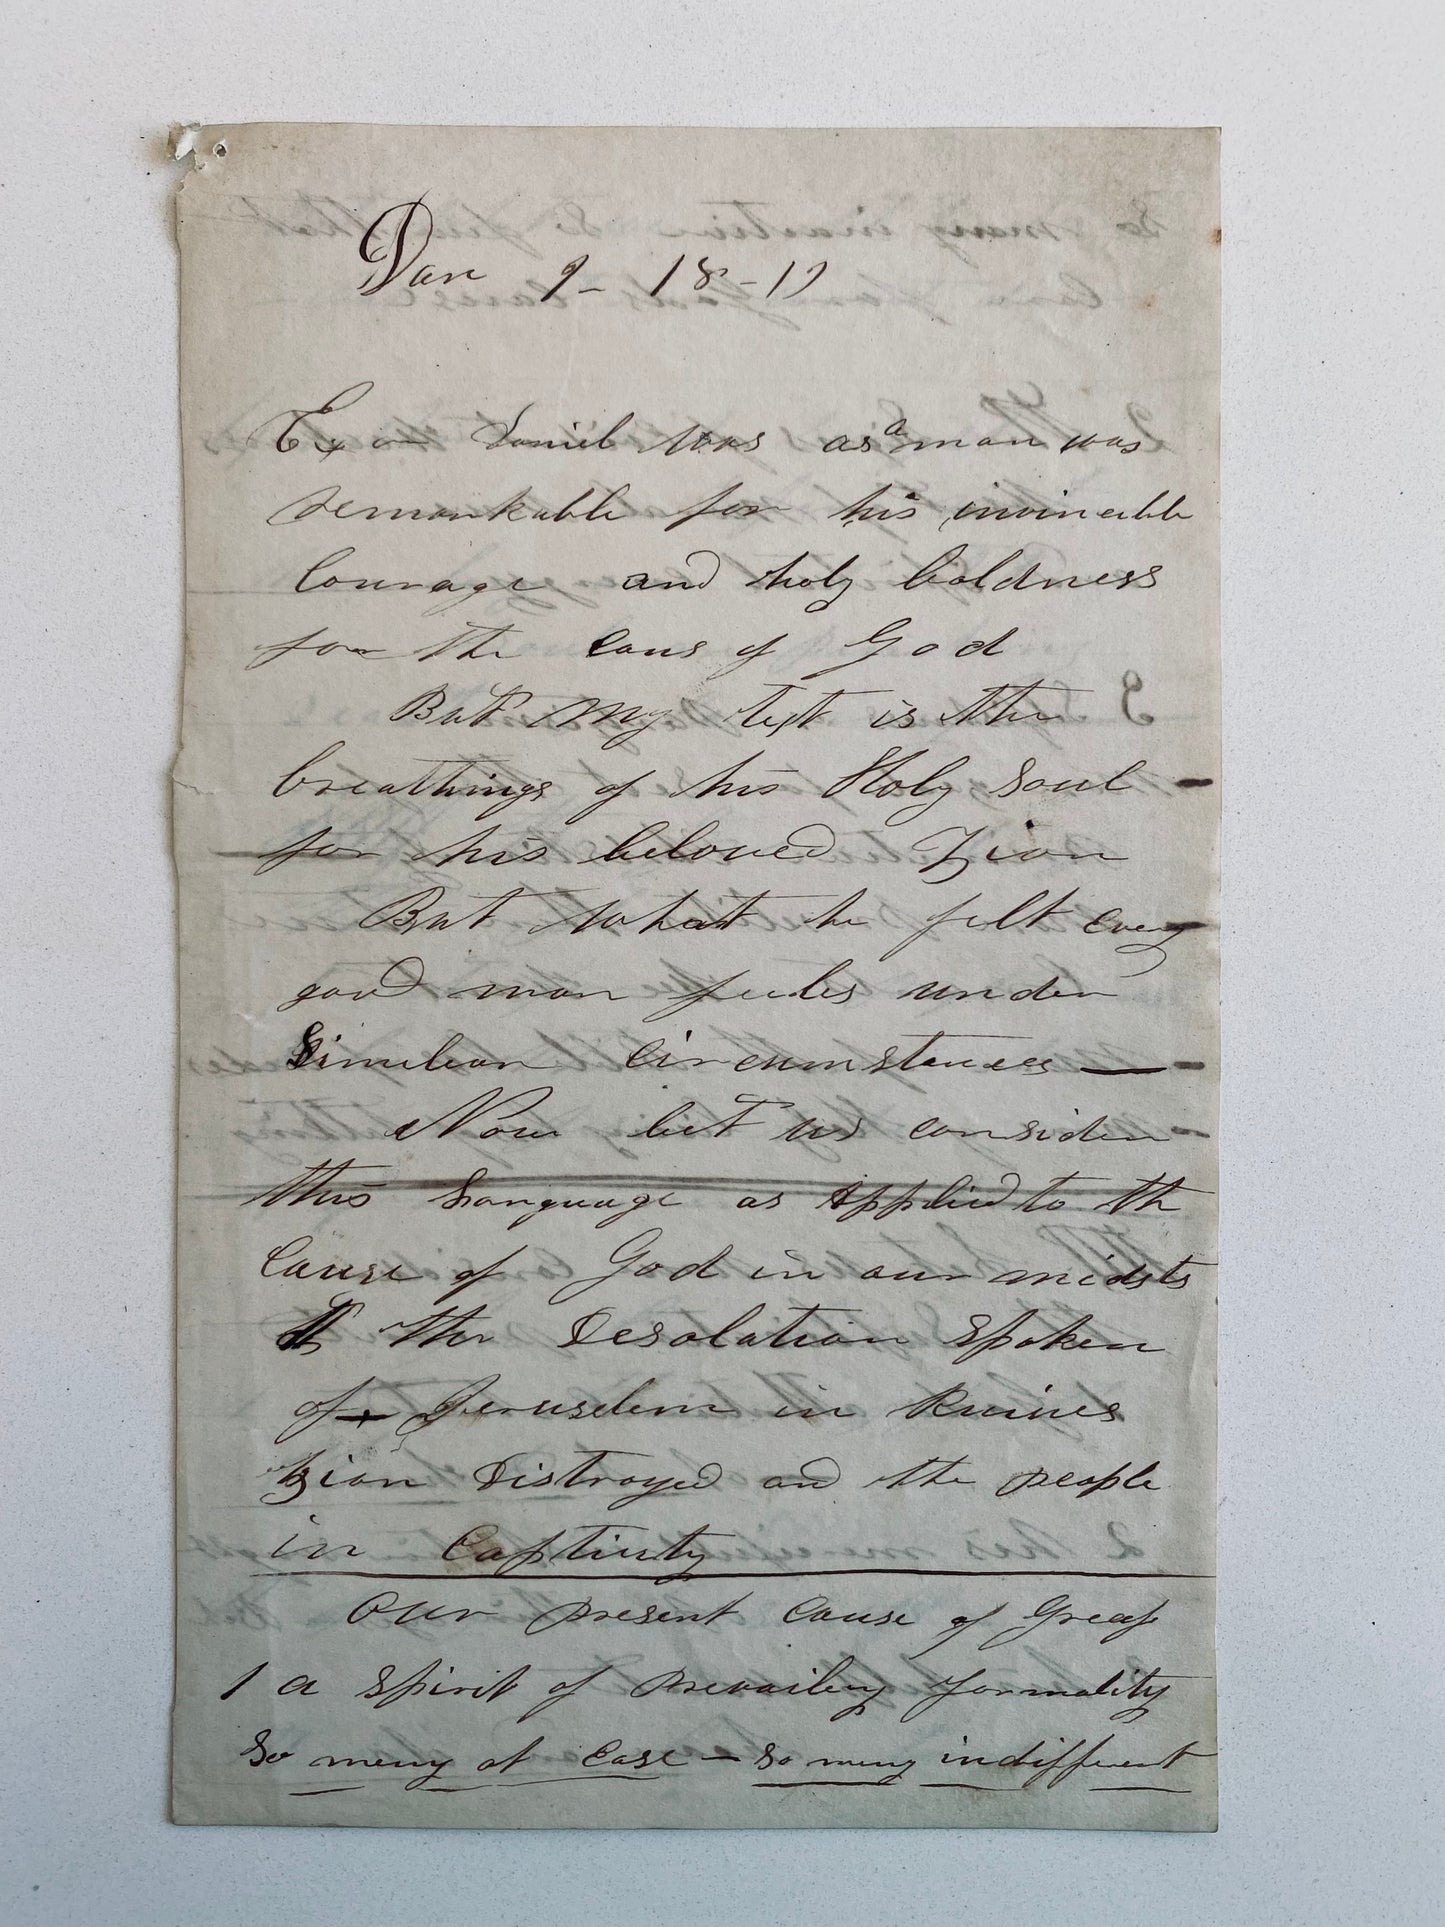 Dan 9 - 18-19
Ex or Daniel was as a man was
remarkable for his invincebble
Courage and holy boldness
for the Caus of God
But My text is the
breathings of his Holy Soul -
for his beloved Zion
But what he felt every
good man feeles under
Simelear Circumstances —
Now let us consider
this Language as applied to the
Cause of God in our midsts
the Desolation Spoken
of Jeruselem in Ruines
Zion Distroyed and the people
in Captivity
Our present Cause of Greaf
1 a Spirit of prevailing formality
So meny at Ease - So meny indifferent